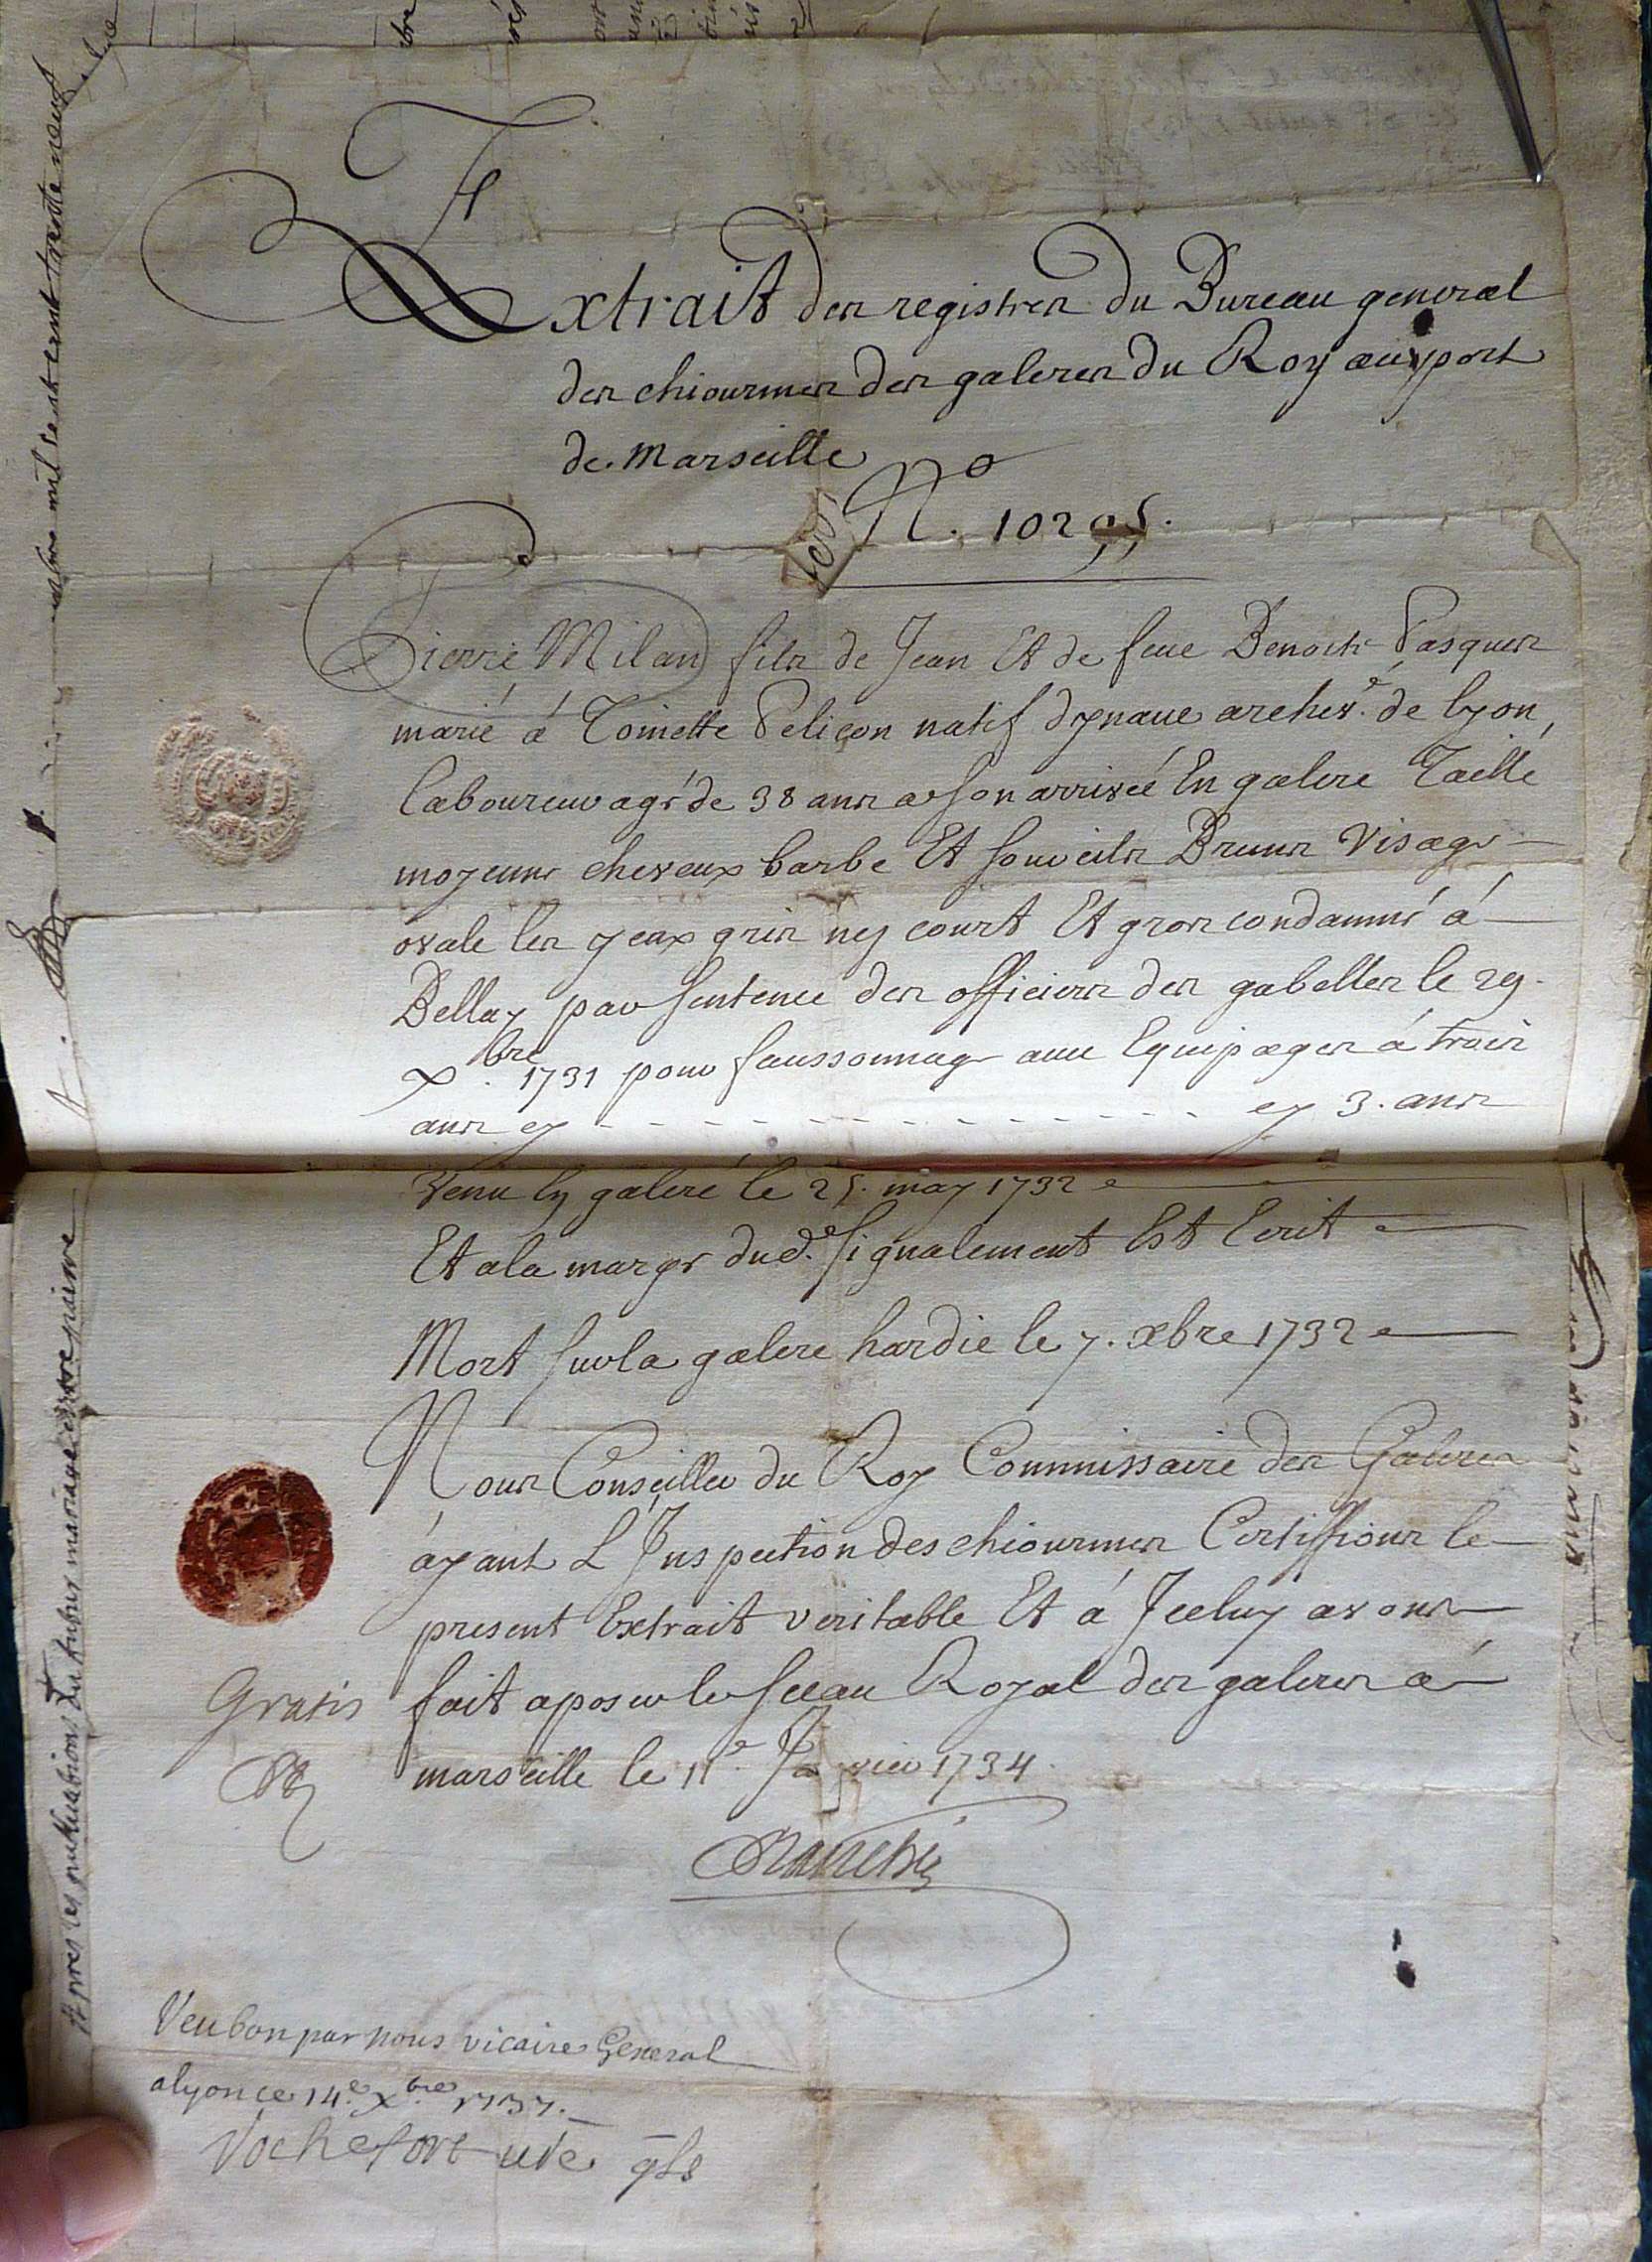 Extrait des registres du Bureau general
des chiourmes des galeres du Roy au port
de Marseille
N.o 10295.
Pierre Milan fils de Jean Et de feue Benoite Pasques
marié à Toinette Peliçon natif dynaue archev.é de lyon,
laboureur agé de 38 ans a son arrivée En galere Taille
moyenne cheveux barbe Et sourcils Bruns Visage
ovale les yeux gris nez court Et gros condamné á
Bellay par sentence des officiers des gabelles le 29.
xbre. 1731 pour faussonnage avec Equipages á trois
ans cy - - - - - - - - - - - - cy 3. ans
Venu En galere le 25. may 1732
Et a la marge dud. signalement Est Ecrit
Mort sur la galere hardie le 7. xbre 1732
Nous Conseiller du Roy Commissaire des Galeres
áyant L'Inspection des chiourmes Certiffions le
present Extrait veritable Et á Jceluy avons
fait aposer le sceau Royal des galeres a
marseille le 11.e Janvier 1734.
Gratis
Veu bon par nous vicaire General
a lyon ce 14.e xbre. 1737.
Rochefort vic gls
Apres les publications du futur mariage
mil sept cent trente neuf